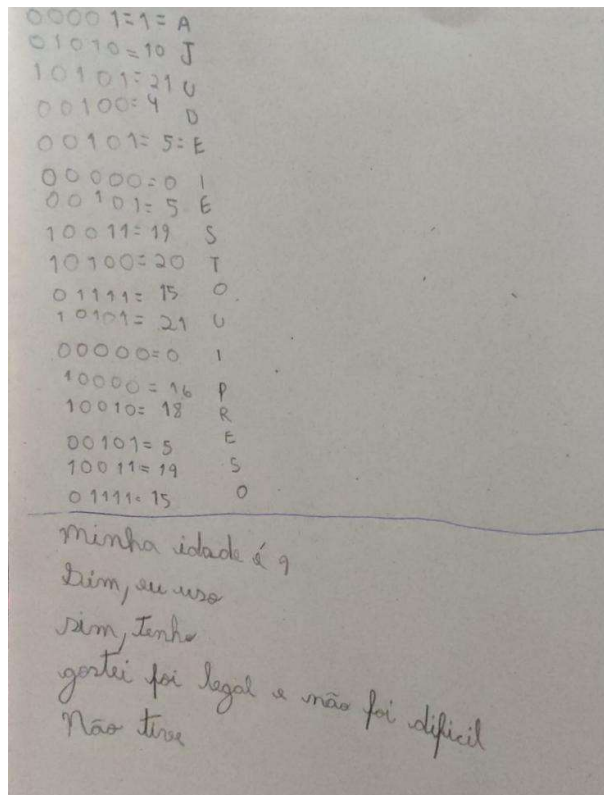 00001=1=A
01010=10 J
10101=21 U
00100=4 D
00101=5=E
00000=0 I
00101=5 E
10011=19 S
10100=20 T
01111=15 O
10101=21 U
00000=0 I
10000=16 P
10010=18 R
00101=5 E
10011=19 S
01111=15 O
minha idade é 9
Sim, eu uso
sim, tenho
gostei foi legal e não foi dificil
Não tive